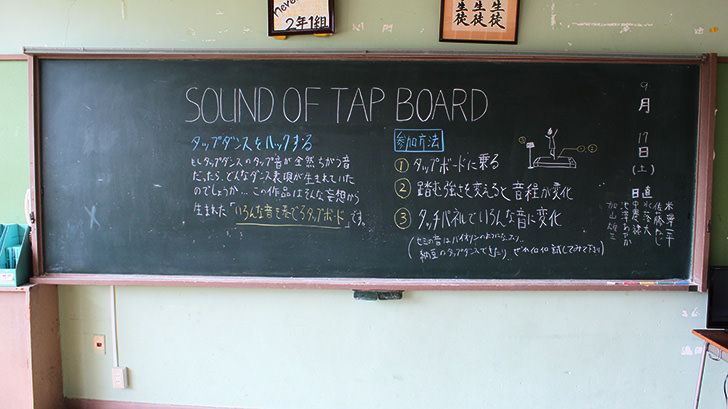 2年1組
生徒
生徒
SOUND OF TAP BOARD
タップダンスをハックする
もしタップダンスのタップ音が全然ちがう音
だったら、どんなダンス表現が生まれていた
のでしょうか… この作品はそんな妄想から
生まれた「いろんな音を奏でるタップボード」です。
参加方法
① タップボードに乗る
② 踏む強さを変えると音程が変化
③ タッチパネルでいろんな音に変化
(セミの音はバイオリンのようになったり、
納豆のタップダンスできたり ぜひイロイロ試してみて下さい)
① ②
③
9月17日(土)
日直